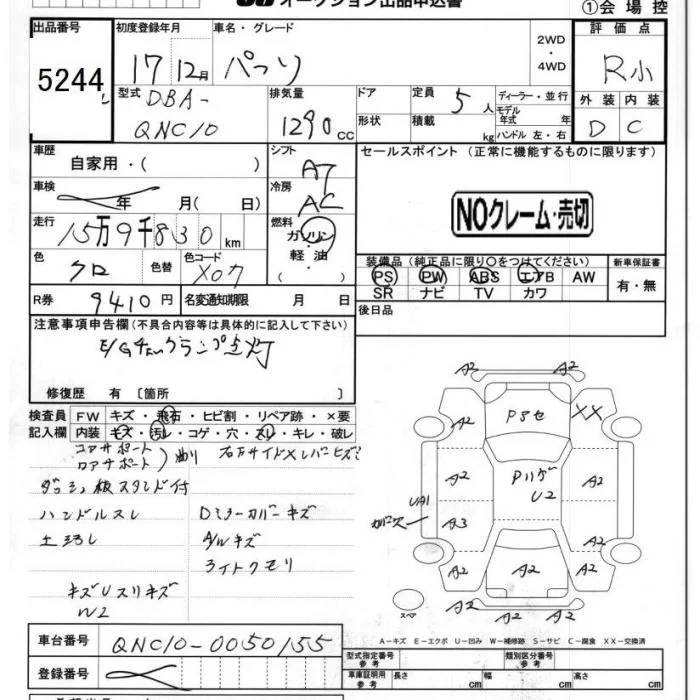 オークション出品申込書
①会場控
出品番号
5244
初度登録年月
17 12月
車名・グレード
パッソ
2WD
・
4WD
評価点
R小
外装 内装
D C
型式
DBA-
QNC10
排気量
1290 cc
ドア
形状
定員 5人
積載 kg
ディーラー・並行
モデル年式 年
ハンドル 左・右
車歴
自家用・( )
シフト
AT
セールスポイント (正常に機能するものに限ります)
車検
年 月( 日)
冷房
AC
NOクレーム・売切
走行
15万9千830 km
燃料
ガソリン
軽油
( )
色
クロ
色替
色コード
X07
装備品 (純正品に限り○をつけてください)
PS PW ABS エアB AW
SR ナビ TV カワ
新車保証書
有・無
R券 9410円
名変通知期限 月 日
後日品
注意事項申告欄(不具合内容等は具体的に記入して下さい)
E/Gチェックランプ点灯
修復歴 有 〔箇所 〕
検査員
記入欄
FW キズ・飛石・ヒビ割・リペア跡・×要
内装 キズ・汚レ・コゲ・穴・スレ・キレ・破レ
コアサポート
ロアサポート
ダッシュ板スタンド付
ハンドルスレ
Dミラーカバーキズ
A/Wキズ
ライトクモリ
キズUスリキズ
W2
A2
A2
A2
XX
A2
UA1
A3
A2
A2
A2
A2
A2
A2
A2
A2
U2
スペア
A-キズ E-エクボ U-凹み W-補修跡 S-サビ C-腐食 XX-交換済
車台番号
QNC10-0050155
登録番号
型式指定番号
参考
類別区分番号
参考
車庫証明用
参考
長さ cm
幅 cm
高さ cm